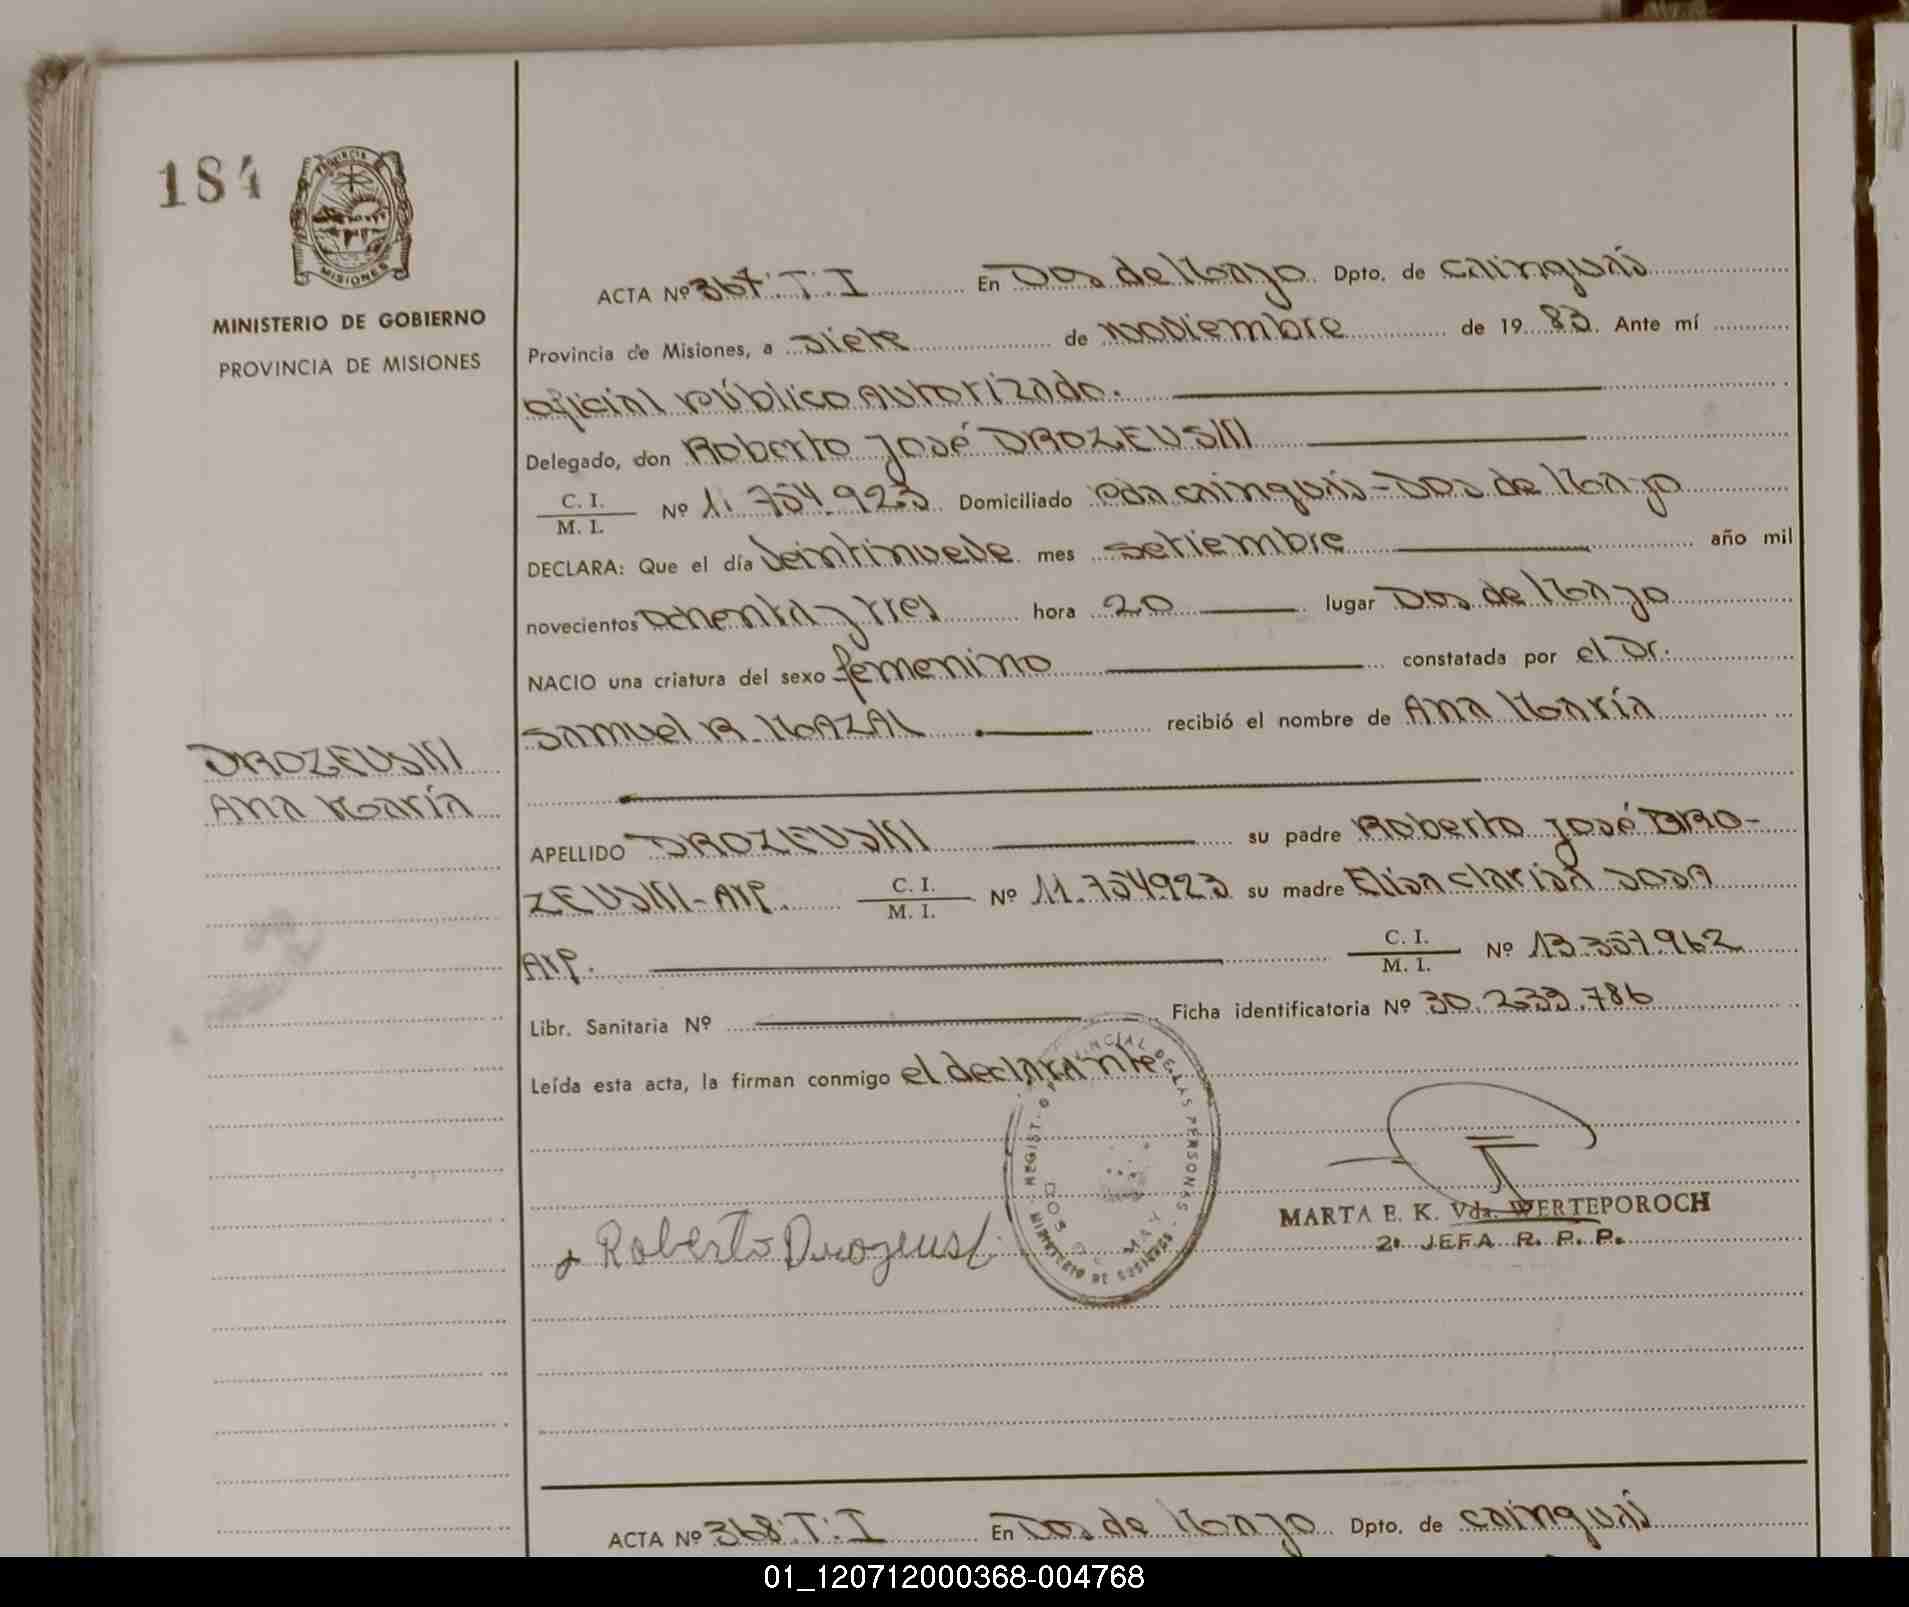 184
PROVINCIA
MISIONES
MINISTERIO DE GOBIERNO
PROVINCIA DE MISIONES
ACTA Nº 367.T.I En Dos de Mayo Dpto. de Cainguás
Provincia de Misiones, a siete de noviembre de 19 83. Ante mí
oficial público autorizado.
Delegado, don Roberto José DROZEUSKI
C. I.
M. I. Nº 11.754.923 Domiciliado Pdn Cainguás - Dos de Mayo
DECLARA: Que el día veintinueve mes setiembre año mil
novecientos ochenta y tres hora 20 lugar Dos de Mayo
NACIO una criatura del sexo femenino constatada por el Dr.
SAMUEL R. MAZAL recibió el nombre de Ana María
DROZEUSKI
Ana María
APELLIDO DROZEUSKI su padre Roberto José DRO-
ZEUSKI - Arg. C. I.
M. I. Nº 11.754923 su madre SOSA
Arg. C. I.
M. I. Nº 13.357.962
Libr. Sanitaria Nº Ficha identificatoria Nº 30.239.786
Leída esta acta, la firman conmigo el declarante.
REGISTRO PROVINCIAL DE LAS PERSONAS
DOS DE MAYO
MINISTERIO DE GOBIERNO
Roberto Drozeuski
MARTA E. K. Vda. WERTEPOROCH
2ª JEFA R. P. P.
ACTA Nº 368.T.I En Dos de Mayo Dpto. de Cainguás
01_120712000368-004768